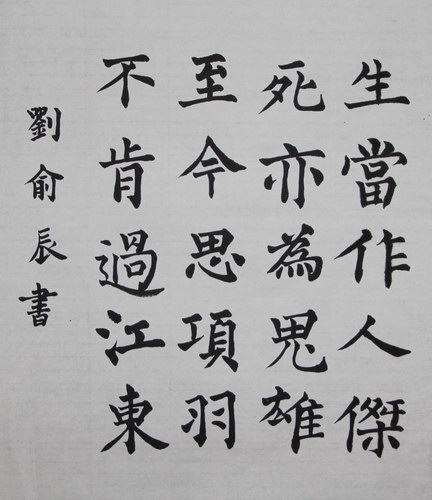 生當作人傑
死亦為鬼雄
至今思項羽
不肯過江東
劉俞辰書